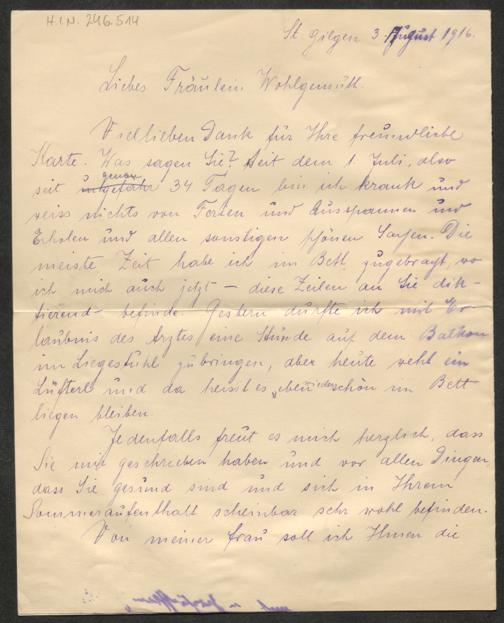 H.I.N. 246.514
St. Gilgen 3. August 1916.
Liebes Fräulein Wohlgemuth.
Viel lieben Dank für Ihre freundliche
Karte. Was sagen Sie? Seit dem 1 Juli, also
seit ungefähr genau 34 Tagen bin ich krank und
weiss nichts von Ferien und Ausspannen und
Erholen und allen sonstigen schönen Sachen. Die
meiste Zeit habe ich im Bett zugebracht, wo
ich mich auch jetzt – diese Zeilen an Sie dik-
tierend – befinde. Gestern durfte ich mit Er-
laubnis des Arztes eine Stunde auf dem Balkon
im Liegestuhl zubringen, aber heute weht ein
Lüfterl und da heisst es, eben wieder schön im Bett
liegen bleiben
Jedenfalls freut es mich herzlich, dass
Sie mir geschrieben haben und vor allen Dingen,
dass Sie gesund sind und sich in Ihrem
Sommeraufenthalt scheinbar sehr wohl befinden.
Von meiner Frau soll ich Ihnen die